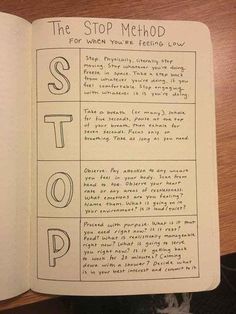 The STOP Method
FOR WHEN YOU'RE FEELING LOW
S
Stop. Physically, literally stop
moving. Stop whatever you're doing.
Freeze in space. Take a step back
from whatever you're doing, if you
feel comfortable. Stop engaging
with whatever it is you're doing.
T
Take a breath (or many). Inhale
for five seconds, pause at the top
of your breath, then exhale for
seven seconds. Focus only on
breathing. Take as long as you need.
O
Observe. Pay attention to any
you feel in your body. Scan from
head to toe. Observe your heart
rate or any areas of
What emotions are you feeling?
Name them. What is going on in
your environment? Is it loud? Quiet?
P
Proceed with purpose. What is it that
you need right now? Is it rest?
Food? What is realistically manageable
right now? What is going to serve
you right now? Is it getting back
to work for 20 minutes? Calming
down with a shower? Decide what
is in your best interest and commit to it.